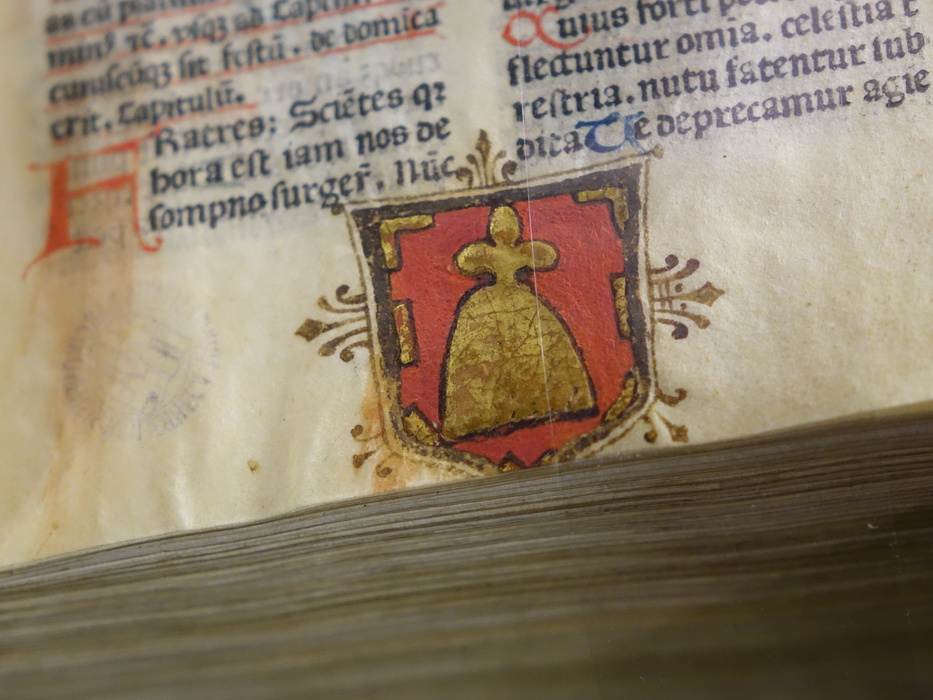 minꝰ ⁊c. vsqꝫ ad Capitulum
cuiuscūqꝫ sit festū. de domica
erit. Capitulū.
HRatres: Sciētes qꝛ
hora est iam nos de
sompno surgeꝛ̄. Nūc
Cuius forti
flectuntur omīa. celestia t
restria. nutu fatentur sub
dita Te deprecamur agie